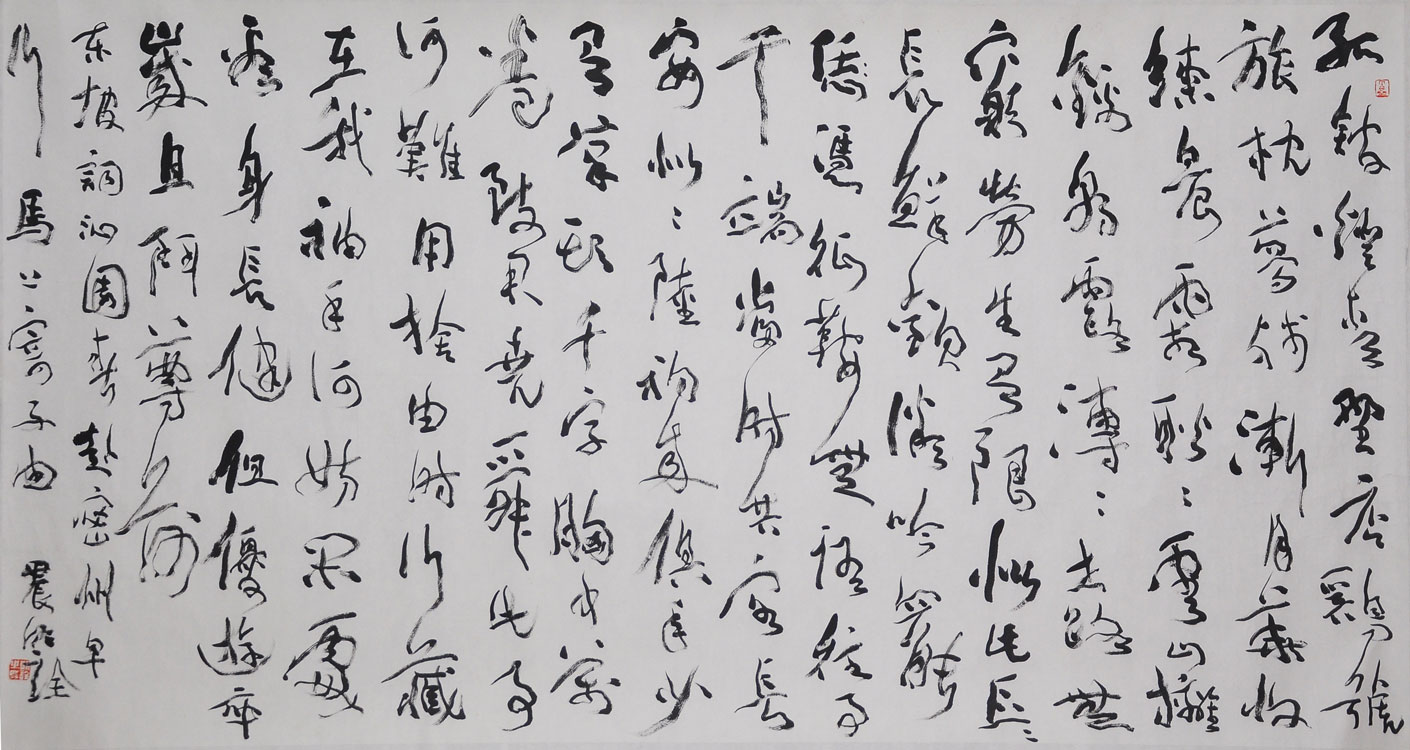 孤館燈青野店鷄號
旅枕夢殘漸月華收
練晨霜耿々雲山摛
錦朝露漙々世路無
窮勞生有限似此區々
長鮮歡微吟罷
憑征鞍無語往事
千端當時共客長
安似二陸初來俱年少
有筆頭千字胸中萬
卷致君堯舜此事
何難用捨由時行藏
在我袖手何妨閑處
看身長健但優遊卒
歲且鬥尊前
東坡詞沁園春赴密州早
行馬上寄子由